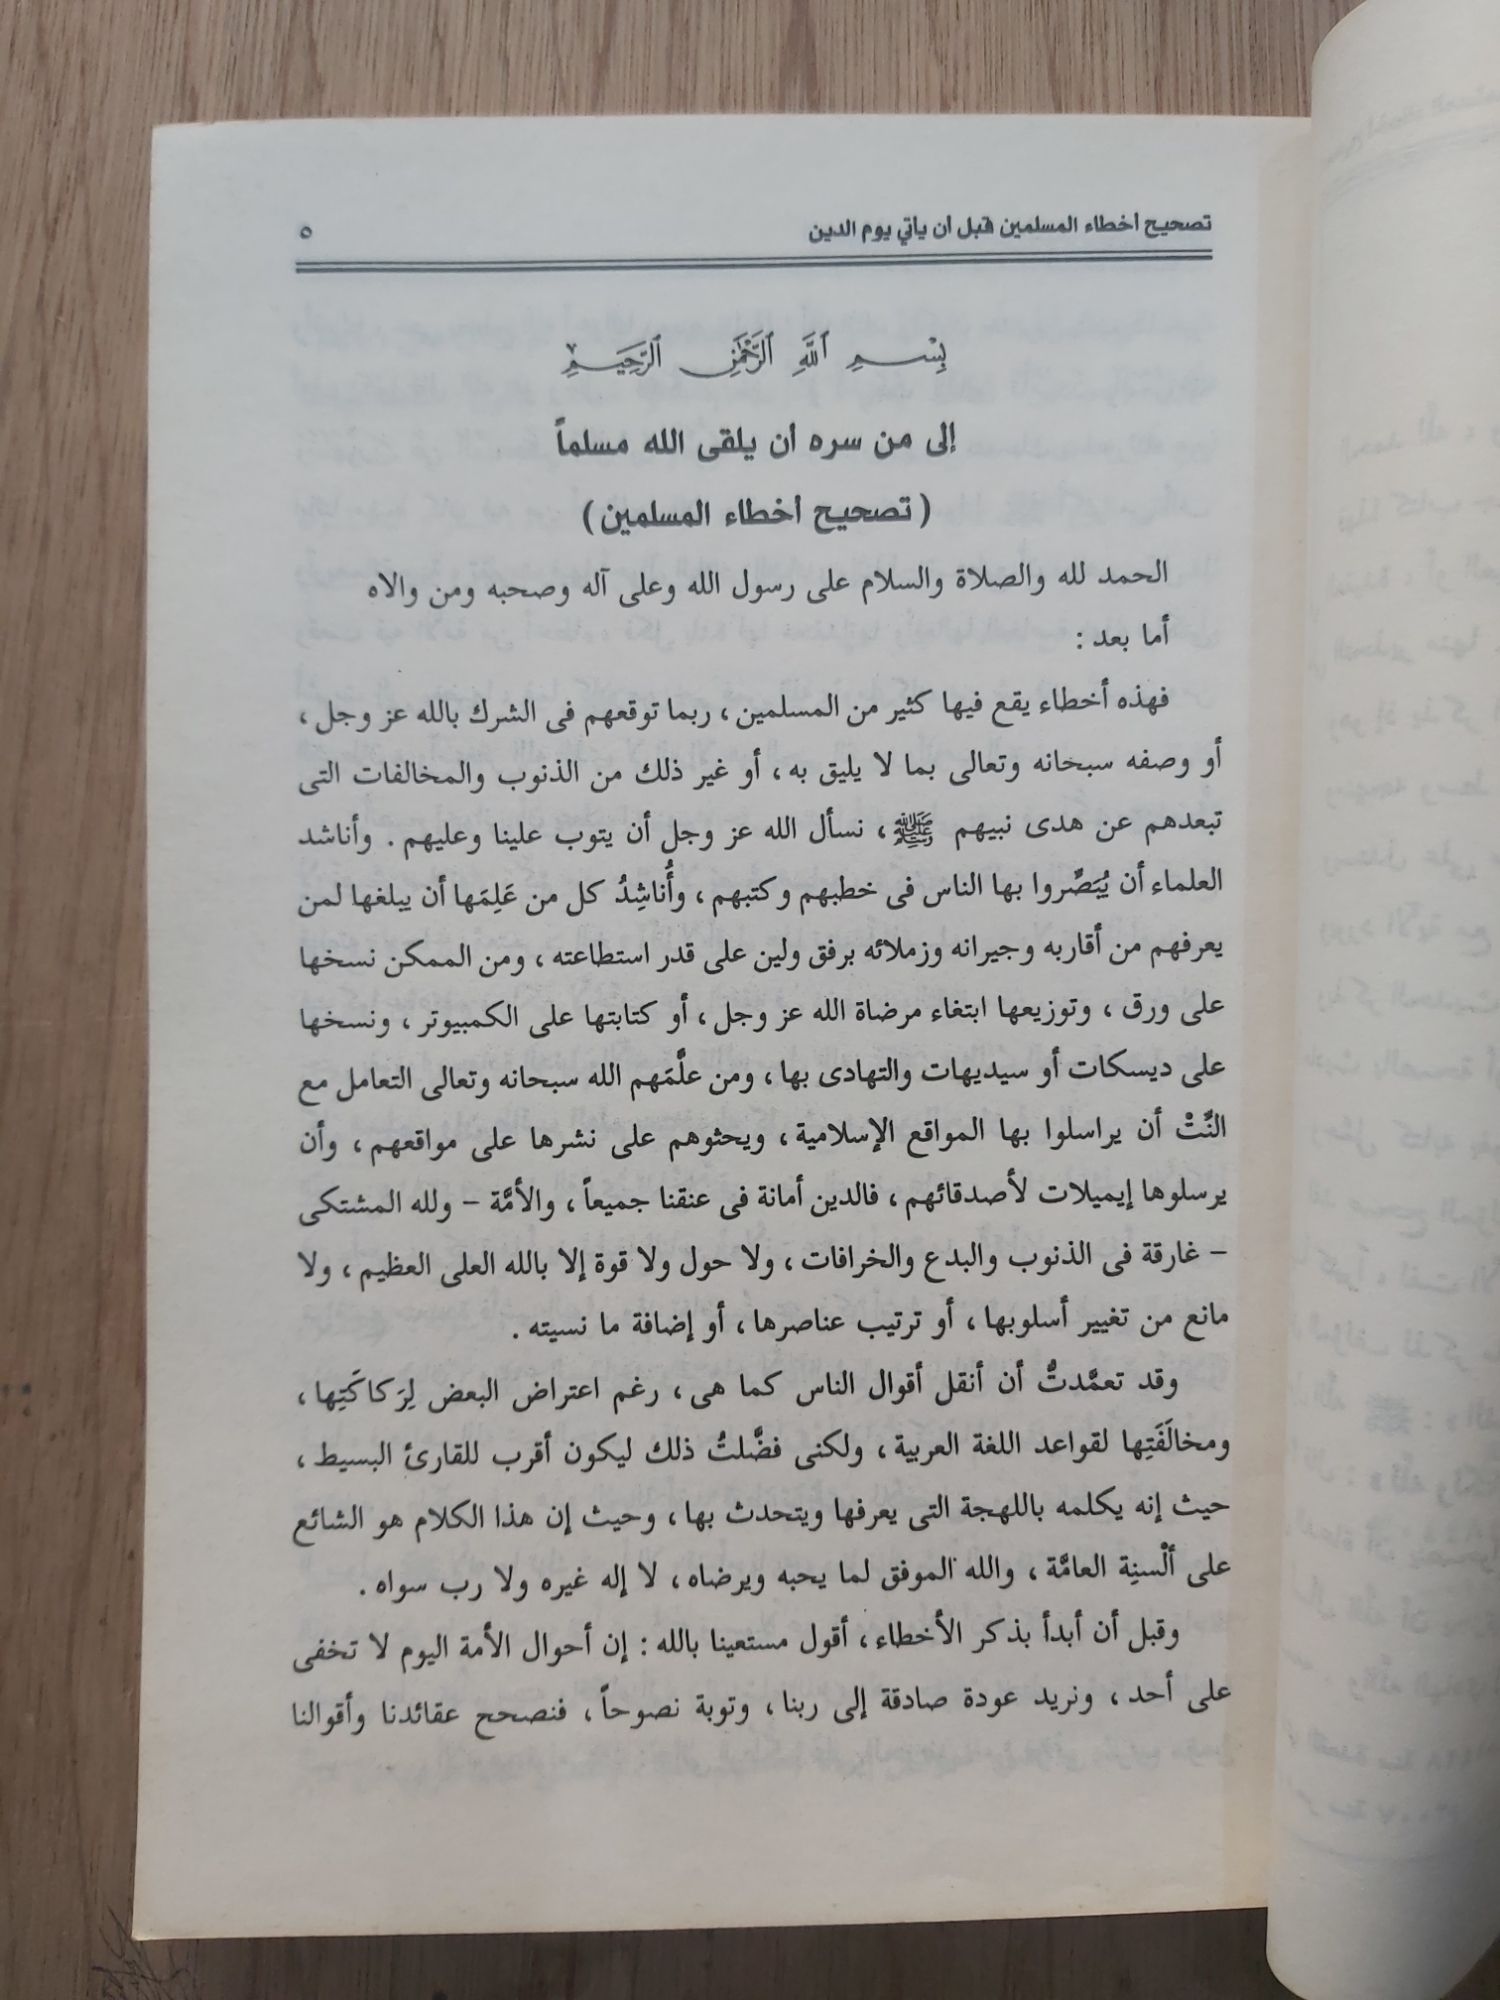 تصحيح أخطاء المسلمين قبل أن يأتي يوم الدين ٥
بِسْمِ ٱللَّهِ ٱلرَّحْمَٰنِ ٱلرَّحِيمِ
إلى من سره أن يلقى الله مسلماً
( تصحيح أخطاء المسلمين )
الحمد لله والصلاة والسلام على رسول الله وعلى آله وصحبه ومن والاه
أما بعد :
فهذه أخطاء يقع فيها كثير من المسلمين ، ربما توقعهم فى الشرك بالله عز وجل ،
أو وصفه سبحانه وتعالى بما لا يليق به ، أو غير ذلك من الذنوب والمخالفات التى
تبعدهم عن هدى نبيهم ﷺ ، نسأل الله عز وجل أن يتوب علينا وعليهم . وأناشد
العلماء أن يُبَصِّروا بها الناس فى خطبهم وكتبهم ، وأُناشِدُ كل من عَلِمَها أن يبلغها لمن
يعرفهم من أقاربه وجيرانه وزملائه برفق ولين على قدر استطاعته ، ومن الممكن نسخها
على ورق ، وتوزيعها ابتغاء مرضاة الله عز وجل ، أو كتابتها على الكمبيوتر ، ونسخها
على ديسكات أو سيديهات والتهادى بها ، ومن علَّمَهم الله سبحانه وتعالى التعامل مع
النِّتْ أن يراسلوا بها المواقع الإسلامية ، ويحثوهم على نشرها على مواقعهم ، وأن
يرسلوها إيميلات لأصدقائهم ، فالدين أمانة فى عنقنا جميعاً ، والأمَّة – ولله المشتكى
– غارقة فى الذنوب والبدع والخرافات ، ولا حول ولا قوة إلا بالله العلى العظيم ، ولا
مانع من تغيير أسلوبها ، أو ترتيب عناصرها ، أو إضافة ما نسيته .
وقد تعمَّدتُّ أن أنقل أقوال الناس كما هى ، رغم اعتراض البعض لِرَكاكَتِها ،
ومخالَفَتِها لقواعد اللغة العربية ، ولكنى فضَّلتُ ذلك ليكون أقرب للقارئ البسيط ،
حيث إنه يكلمه باللهجة التى يعرفها ويتحدث بها ، وحيث إن هذا الكلام هو الشائع
على ألْسنِة العامَّة ، والله الموفق لما يحبه ويرضاه ، لا إله غيره ولا رب سواه .
وقبل أن أبدأ بذكر الأخطاء ، أقول مستعينا بالله : إن أحوال الأمة اليوم لا تخفى
على أحد ، ونريد عودة صادقة إلى ربنا ، وتوبة نصوحاً ، فنصحح عقائدنا وأقوالنا